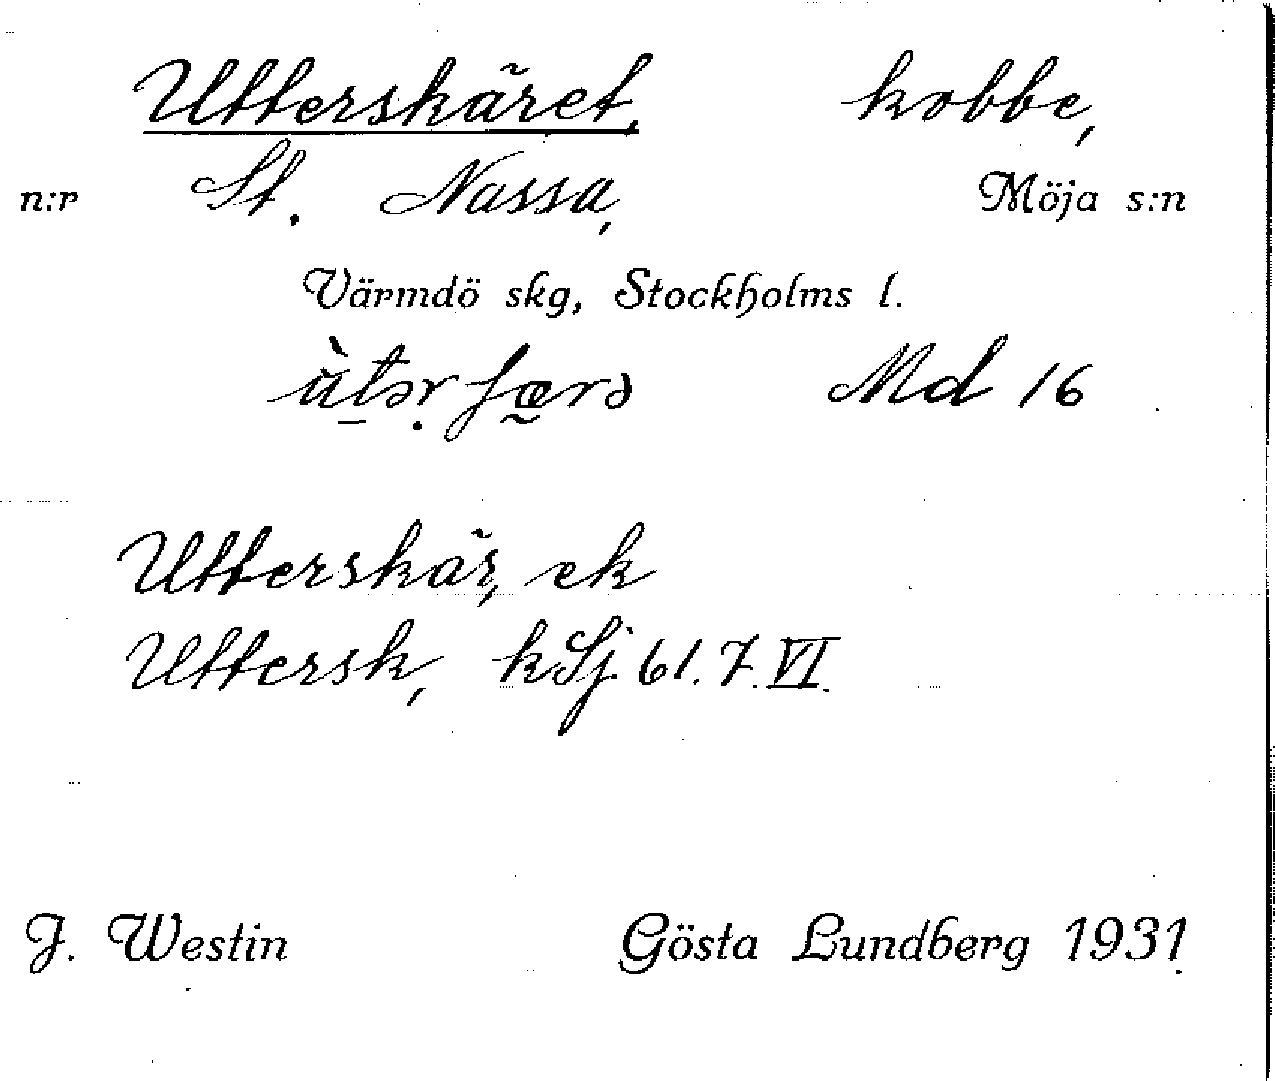 Utterskäret, kobbe,
n:r St. Nassa, Möja s:n
Värmdö skg, Stockholms l.
Md 16
Utterskär, ek
Uttersk, kSj 61.7.VI.
J. Westin Gösta Lundberg 1931